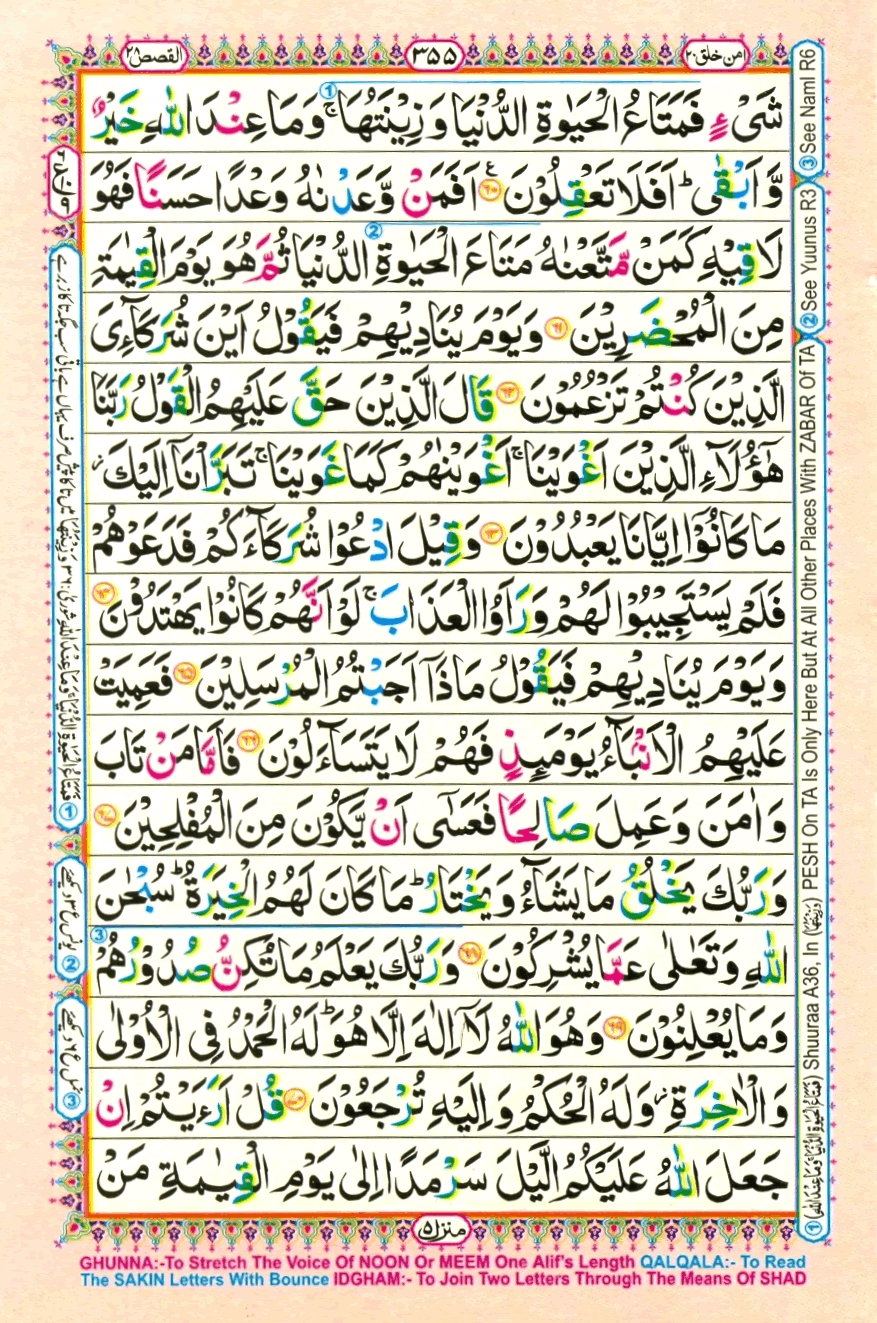 امن خلق ٢٠
٣٥٥
القصص ٢٨
شَیْءٍ فَمَتَاعُ الْحَیٰوةِ الدُّنْیَا وَ زِیْنَتُهَا ۚ وَ مَا عِنْدَ اللّٰهِ خَیْرٌ
وَّ اَبْقٰی ؕ اَفَلَا تَعْقِلُوْنَ ﴿٦٠﴾ اَفَمَنْ وَّعَدْنٰهُ وَعْدًا حَسَنًا فَهُوَ
لَاقِیْهِ كَمَنْ مَّتَّعْنٰهُ مَتَاعَ الْحَیٰوةِ الدُّنْیَا ثُمَّ هُوَ یَوْمَ الْقِیٰمَةِ
مِنَ الْمُحْضَرِیْنَ ﴿٦١﴾ وَ یَوْمَ یُنَادِیْهِمْ فَیَقُوْلُ اَیْنَ شُرَكَآءِیَ
الَّذِیْنَ كُنْتُمْ تَزْعُمُوْنَ ﴿٦٢﴾ قَالَ الَّذِیْنَ حَقَّ عَلَیْهِمُ الْقَوْلُ رَبَّنَا
هٰۤؤُلَآءِ الَّذِیْنَ اَغْوَیْنَا ۚ اَغْوَیْنٰهُمْ كَمَا غَوَیْنَا ۚ تَبَرَّاْنَاۤ اِلَیْكَ ؗ
مَا كَانُوْۤا اِیَّانَا یَعْبُدُوْنَ ﴿٦٣﴾ وَ قِیْلَ ادْعُوْا شُرَكَآءَكُمْ فَدَعَوْهُمْ
فَلَمْ یَسْتَجِیْبُوْا لَهُمْ وَ رَاَوُا الْعَذَابَ ۚ لَوْ اَنَّهُمْ كَانُوْا یَهْتَدُوْنَ ﴿٦٤﴾
وَ یَوْمَ یُنَادِیْهِمْ فَیَقُوْلُ مَاذَاۤ اَجَبْتُمُ الْمُرْسَلِیْنَ ﴿٦٥﴾ فَعَمِیَتْ
عَلَیْهِمُ الْاَنْۢبَآءُ یَوْمَىِٕذٍ فَهُمْ لَا یَتَسَآءَلُوْنَ ﴿٦٦﴾ فَاَمَّا مَنْ تَابَ
وَ اٰمَنَ وَ عَمِلَ صَالِحًا فَعَسٰۤی اَنْ یَّكُوْنَ مِنَ الْمُفْلِحِیْنَ ﴿٦٧﴾
وَ رَبُّكَ یَخْلُقُ مَا یَشَآءُ وَ یَخْتَارُ ؕ مَا كَانَ لَهُمُ الْخِیَرَةُ ؕ سُبْحٰنَ
اللّٰهِ وَ تَعٰلٰی عَمَّا یُشْرِكُوْنَ ﴿٦٨﴾ وَ رَبُّكَ یَعْلَمُ مَا تُكِنُّ صُدُوْرُهُمْ
وَ مَا یُعْلِنُوْنَ ﴿٦٩﴾ وَ هُوَ اللّٰهُ لَاۤ اِلٰهَ اِلَّا هُوَ ؕ لَهُ الْحَمْدُ فِی الْاُوْلٰی
وَ الْاٰخِرَةِ ؗ وَ لَهُ الْحُكْمُ وَ اِلَیْهِ تُرْجَعُوْنَ ﴿٧٠﴾ قُلْ اَرَءَیْتُمْ اِنْ
جَعَلَ اللّٰهُ عَلَیْكُمُ الَّیْلَ سَرْمَدًا اِلٰی یَوْمِ الْقِیٰمَةِ مَنْ
منزل ٥
① (فَمَتَاعُ الْحَیٰوةِ الدُّنْیَا وَمَا عِنْدَ اللّٰهِ) Shuuraa A36, In (وَزِیْنَتُهَا) PESH On TA Is Only Here But At All Other Places With ZABAR Of TA
② See Yuunus R3
③ See Naml R6
② یونس ع ٣ دیکھئے
③ نمل ع ٦ دیکھئے
GHUNNA:-To Stretch The Voice Of NOON Or MEEM One Alif's Length QALQALA:- To Read
The SAKIN Letters With Bounce IDGHAM:- To Join Two Letters Through The Means Of SHAD